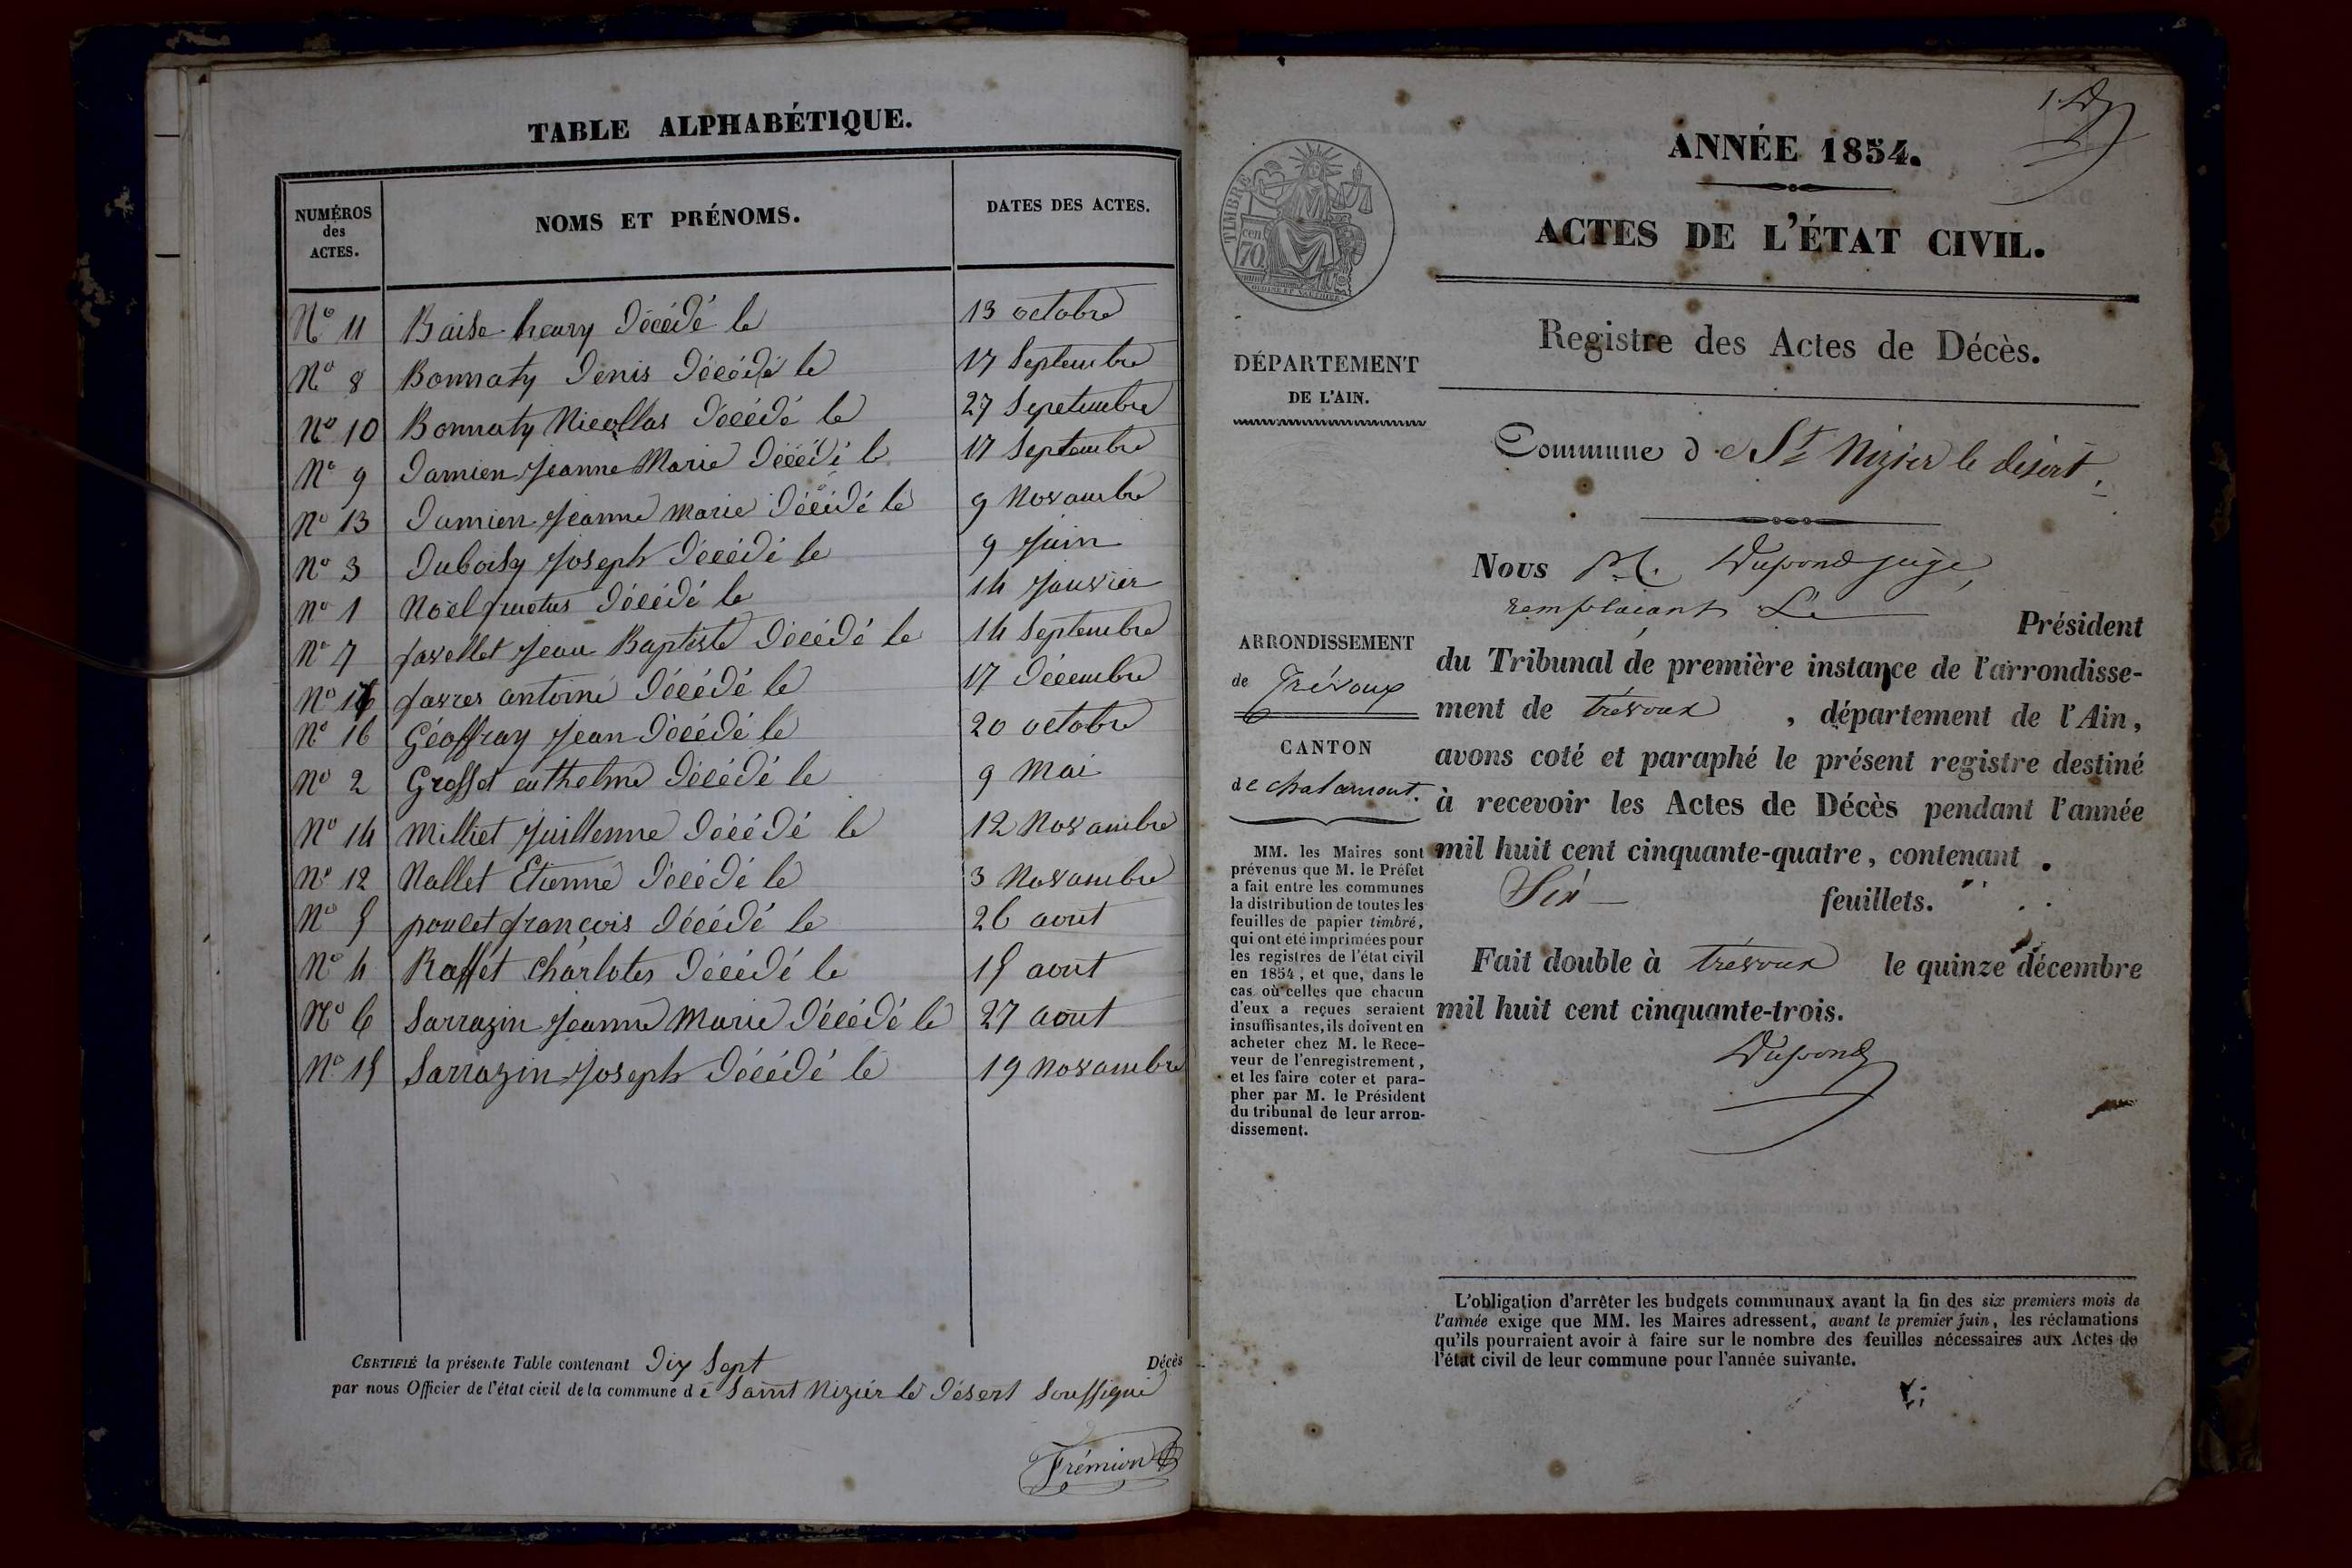 TABLE ALPHABÉTIQUE.
NUMÉROS des ACTES. NOMS ET PRÉNOMS. DATES DES ACTES.
No 11 Baise henry Décédé le 13 octobre
No 8 Bonnaty Denis Décédé le 17 Septembre
No 10 Bonnaty Nicollas Décédé le 27 Sepetembre
No 9 Damien Jeanne Marie Décédé le 17 Septembre
No 13 Damien Jeanne marie Décédé le 9 Novambre
No 3 Duboisy Joseph Décédé le 9 Juin
No 1 Noël fructus Décédé le 14 Janvier
No 7 favellet Jean Baptiste Décédé le 14 Septembre
No 17 favres antoine Décédé le 17 Décembre
No 16 Géoffray Jean Décédé le 20 octobre
No 2 Grosset anthelme Décédé le 9 Mai
No 14 Milliet Juillenne Décédé le 12 Novambre
No 12 Nallet Etienne Décédé le 3 Novambre
No 5 poulet françois Décédé le 26 aout
No 4 Raffet Charlotes Décédé le 15 aout
No 6 Sarrazin Jeanne Marie Décédé le 27 aout
No 15 Sarrazin Joseph Décédé le 19 Novambre
CERTIFIÉ la présente Table contenant Dix Sept Décès
par nous Officier de l'état civil de la commune d e Saint Nizier le Désert Soussigné
Frémion
ANNÉE 1854.
ACTES DE L'ÉTAT CIVIL.
Registre des Actes de Décès.
TIMBRE
cen. 70
DÉPARTEMENT
DE L'AIN.
Commune d e St Nizier le désert.
ARRONDISSEMENT
de Trévoux
CANTON
de chalamont.
MM. les Maires sont
prévenus que M. le Préfet
a fait entre les communes
la distribution de toutes les
feuilles de papier timbré,
qui ont été imprimées pour
les registres de l'état civil
en 1854, et que, dans le
cas où celles que chacun
d'eux a reçues seraient
insuffisantes, ils doivent en
acheter chez M. le Rece-
veur de l'enregistrement,
et les faire coter et para-
pher par M. le Président
du tribunal de leur arron-
dissement.
Nous M. Dupond juge,
remplaçant Le Président
du Tribunal de première instance de l'arrondisse-
ment de trévoux , département de l'Ain,
avons coté et paraphé le présent registre destiné
à recevoir les Actes de Décès pendant l'année
mil huit cent cinquante-quatre, contenant
Six feuillets.
Fait double à trévoux le quinze décembre
mil huit cent cinquante-trois.
Dupond
L'obligation d'arrêter les budgets communaux avant la fin des six premiers mois de
l'année exige que MM. les Maires adressent, avant le premier juin, les réclamations
qu'ils pourraient avoir à faire sur le nombre des feuilles nécessaires aux Actes de
l'état civil de leur commune pour l'année suivante.